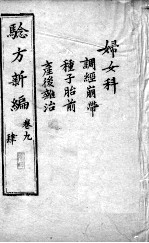 婦女科
調經崩帶
種子胎前
產後雜治
驗方新編
卷九
肆